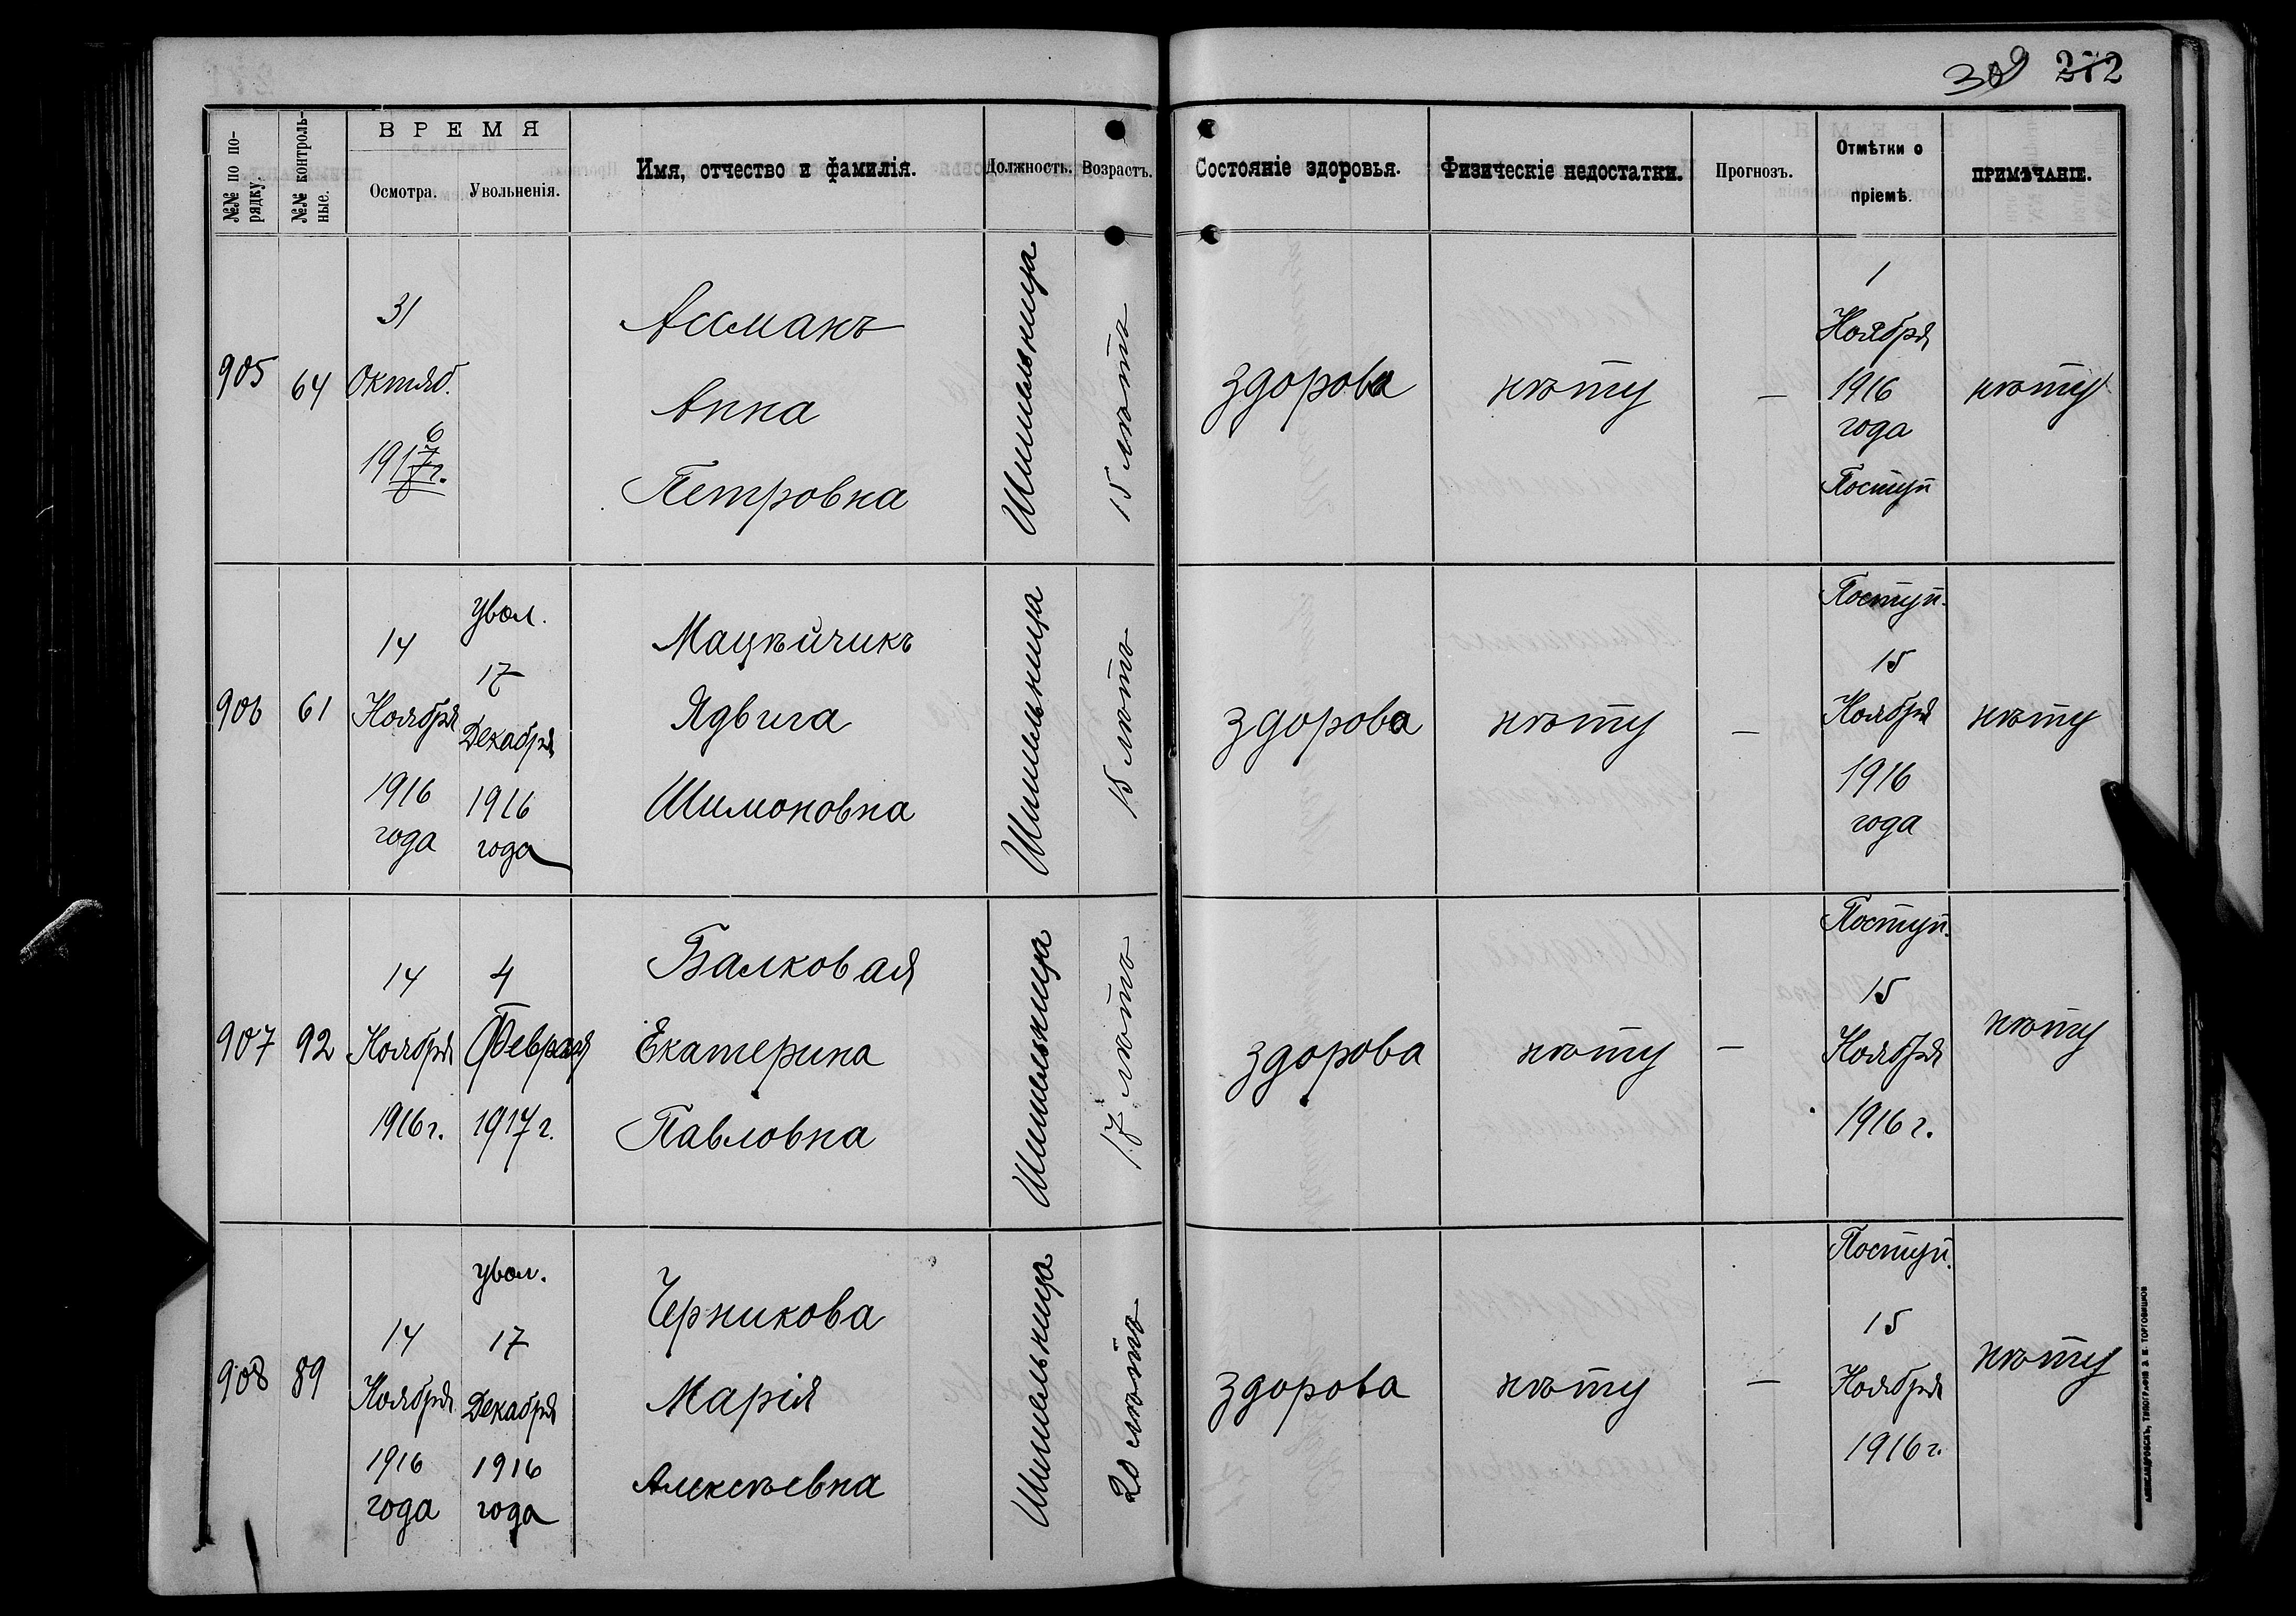 309 272
№№ по по-
рядку.
№№ контроль-
ные.
ВРЕМЯ
Осмотра.
Увольненія.
Имя, отчество и фамилія.
Должность.
Возрастъ.
Состояніе здоровья.
Физическіе недостатки.
Прогнозъ.
Отмѣтки о
пріемѣ.
ПРИМѢЧАНІЕ.
905
64
31
Октяб.
1917 6 г.
Ассманъ
Анна
Петровна
Шпильница
15 лѣтъ
здорова
нѣту
—
1
Ноября
1916
года
Поступ
нѣту
906
61
14
Ноября
1916
года
увол.
17
Декабря
1916
года
Мацѣйчикъ
Ядвига
Шимоновна
Шпильница
15 лѣтъ
здорова
нѣту
—
Поступ.
15
Ноября
1916
года
нѣту
907
92
14
Ноября
1916 г.
4
Февраля
1917 г.
Балковая
Екатерина
Павловна
17 лѣтъ
здорова
нѣту
—
Поступ.
15
Ноября
1916 г.
нѣту
908
89
14
Ноября
1916
года
увол.
17
Декабря
1916
года
Черникова
Марія
Алексѣевна
20 лѣтъ
здорова
нѣту
—
Поступ.
15
Ноября
1916 г.
нѣту
АЛЕКСАНДРОВСКЪ, ТИПОГРАФІЯ Э. В. ТОРГОВИЦКОВ